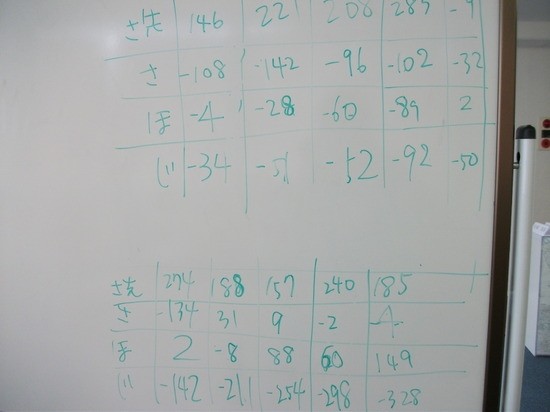 さ先 146 221 208 283
さ -108 -142 -96 -102 -32
ほ -4 -28 -60 -89 2
じ -34 -51 -52 -92 -50
さ先 274 188 157 240 185
さ -134 31 9 -2
ほ 2 -8 88 60 149
じ -142 -211 -254 -298 -328